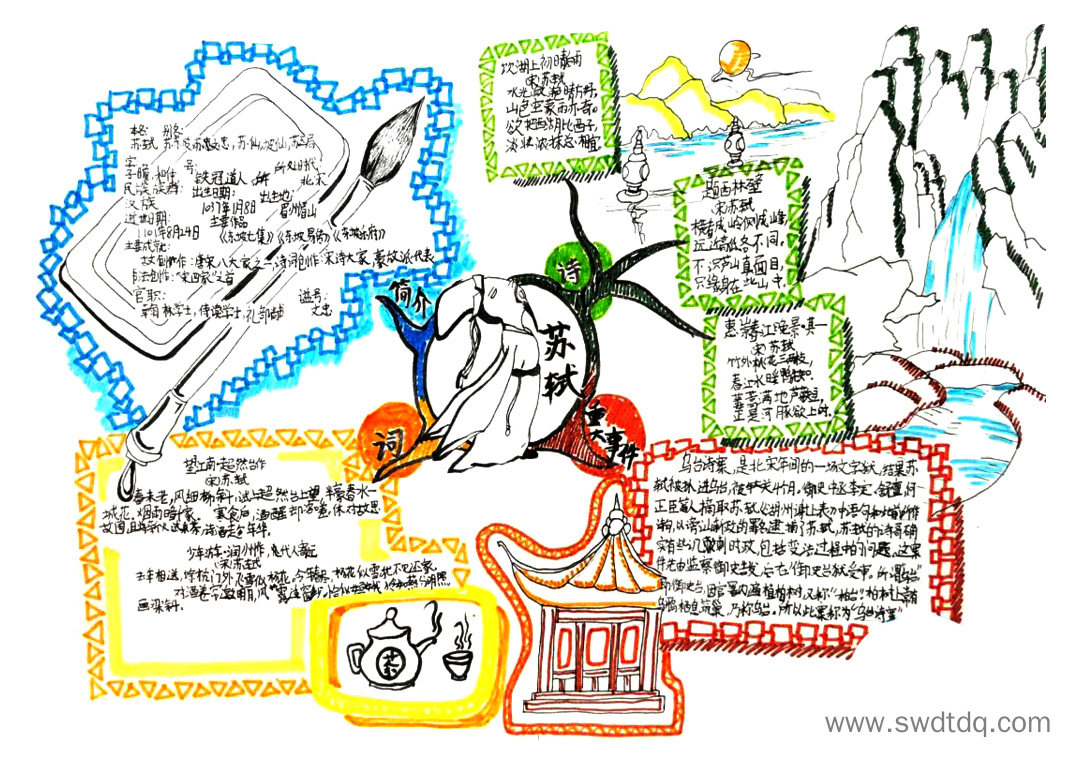 本名: 别名:
苏轼
字 号: 所处时代
铁冠道人 北宋
民族族群: 出生日期: 出生地:
汉族 1037年1月8日 眉州眉山
逝世日期: 主要作品
1101年8月24日 《东坡七集》《东坡易传》《东坡乐府》
主要成就:
文创作: 唐宋八大家之一,诗词创作:宋诗大家,豪放派代表
书法创作:"宋四家"之首
官职: 谥号:
翰林学士,侍读学士,礼部尚书 文忠
简介
诗
词
重大事件
苏轼
饮湖上初晴后雨
宋苏轼
水光潋滟晴方好,
山色空蒙雨亦奇。
欲把西湖比西子,
淡妆浓抹总相宜
题西林壁
宋苏轼
横看成岭侧成峰,
远近高低各不同。
不识庐山真面目,
只缘身在此山中。
惠崇春江晚景·其一
宋 苏轼
竹外桃花三两枝,
春江水暖鸭先知。
蒌蒿满地芦芽短,
正是河豚欲上时。
望江南·超然台作
宋苏轼
春未老,风细柳斜斜,试上超然台上望,半壕春水一
城花。烟雨暗千家。 寒食后,酒醒却咨嗟。休对故人思
故国,且将新火试新茶,诗酒趁年华。
少年游·润州作,代人寄远
宋苏轼
去年相送,余杭门外,飞雪似杨花。今年春尽,杨花似雪,犹不见还家。
对酒卷帘邀明月,风露透窗纱。恰似姮娥怜双燕,分明照、
画梁斜。
乌台诗案,是北宋年间的一场文字狱,结果苏
轼被抓进乌台,被关4个月。御史中丞李定、舒亶、何
正臣等人摘取苏轼《湖州谢上表》中语句和此前所作
诗句,以谤讪新政的罪名逮捕了苏轼,苏轼的诗歌确
实有些讥刺时政,包括变法过程中的问题。这案
件先由监察御史告发,后在御史台狱受审。所谓"乌台"
即御史台,因官署内遍植柏树,又称"柏台"。柏树上常有
乌鸦栖息筑巢,乃称乌台。所以此案称为"乌台诗案"
茶
www.swdtdq.com